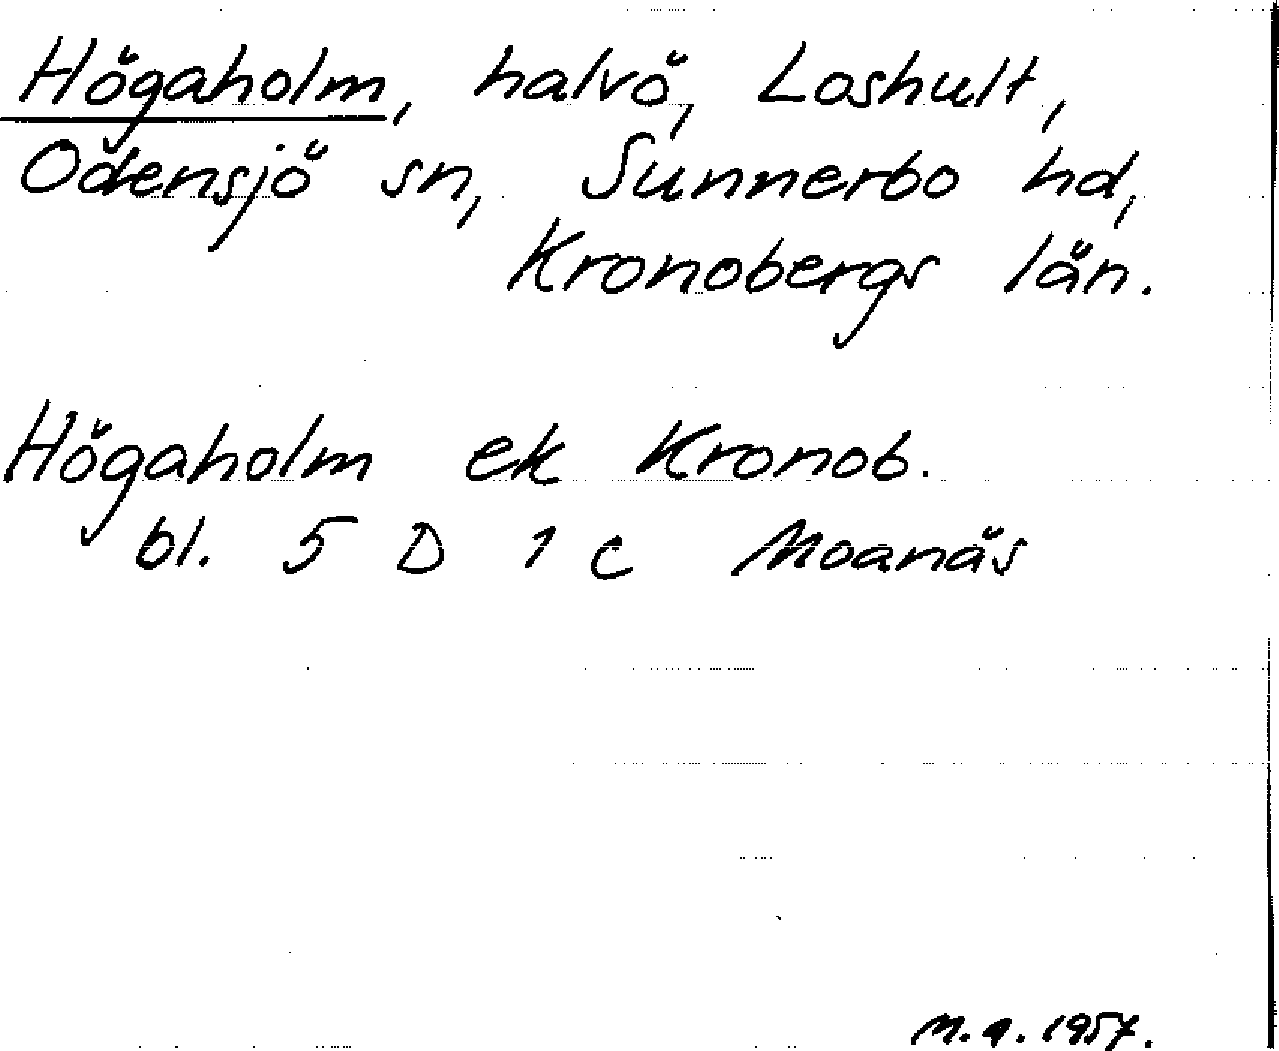 Högaholm, halvö, Loshult,
Odensjö sn, Sunnerbo hd,
Kronobergs län.
Högaholm ek Kronob.
bl. 5 D 1 c Moanäs
M.A. 1957.